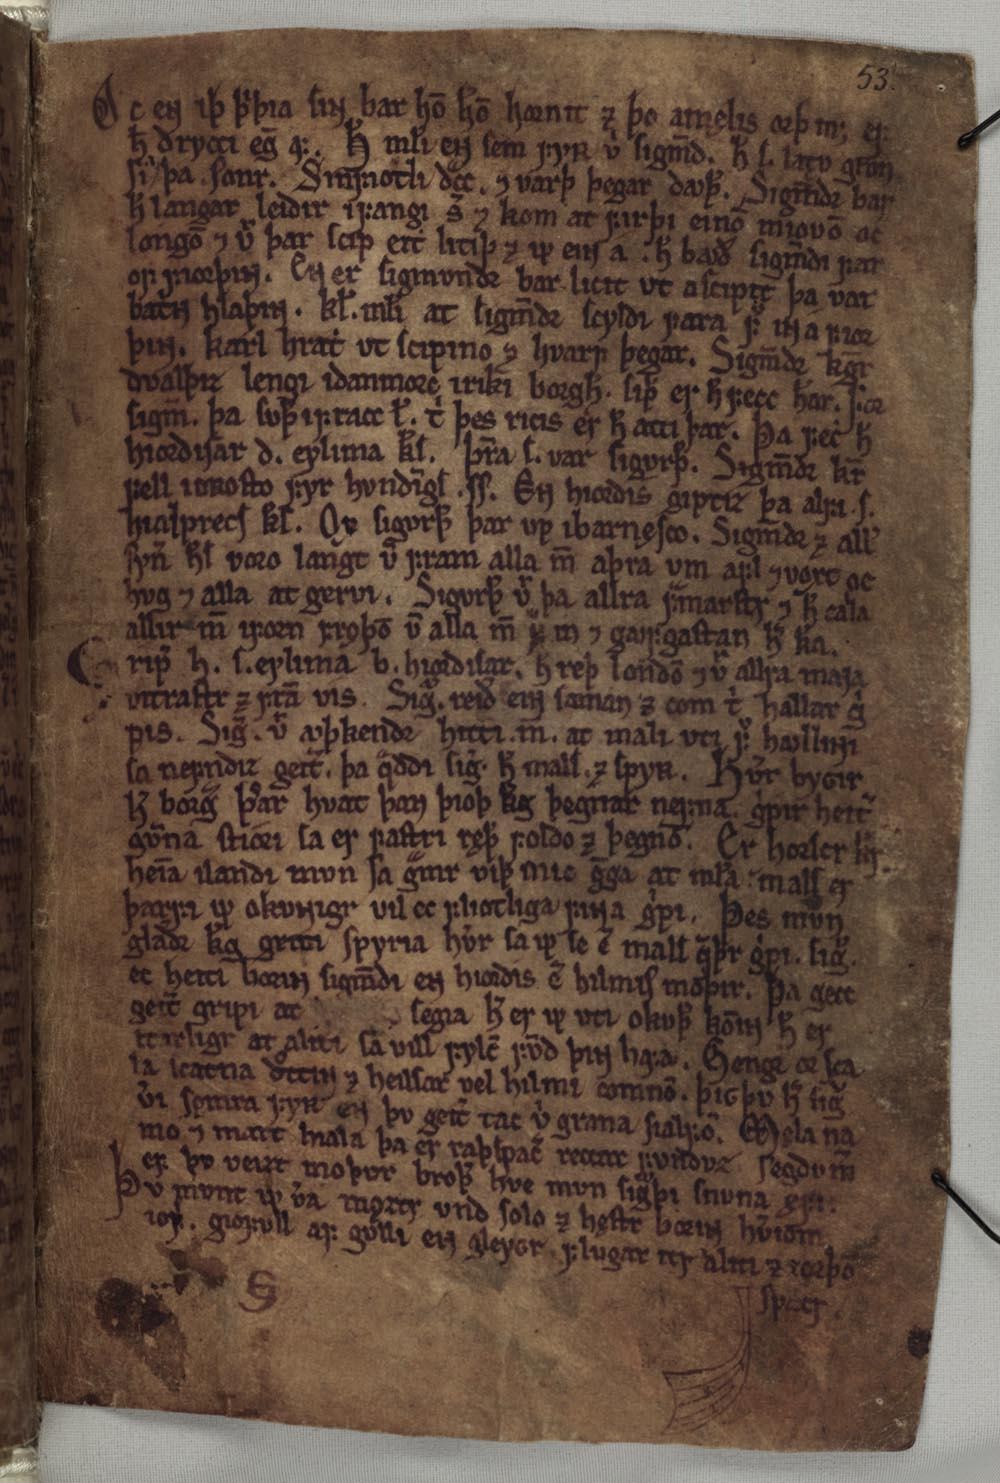 53.
c en iþ þͥþia sin bar hō hō hornit ⁊ þo amęlis orþ
h̄ drycci eɴ fyʀ v̓ sigm̄d. h̄ s. latv grōn
si þa sonr. Sinfiotli dcc. ⁊ varþ þegar davþ. Sigm̄dr bar
h̄ langar leiðir ifangi s̄ ⁊ kom at firþi einō miovō oc
longō ⁊ v̓ þar scip eit litiþ ⁊ maþr ein a. h̄ bavð sigm̄di far
of fiorþin. En er sigmvndr bar licit vt a scipit þa var
batrin hlaþin. kl̄. mlͥ at sigm̄dr scyldi fara f̓ inā fior
þin. karl hratt vt scipino ⁊ hvarf þegar. Sigm̄dr kgr
dvalþiz lengi idanmorc iriki borgh. siþ er h̄ fecc h̄ar. for
sigm̄. þa svþr ifracc l̄. t̓ þes ricis er h̄ atti þar. Þa fecc h̄
hiordisar d. eylima kl̄. þr̄a s. var sigvrþ. Sigm̄dr kr̄
fell iorosto fyr hvndīgs .ss. En hiordis giptiz þa alfi .s.
hialprecs kl̄. Ox sigvrþ þar vp ibarnęsco. Sigm̄dr ⁊ allͥ
synͥ h̄s voro langt v̄ fram alla m̄ aþra vm afl ⁊ voxt oc
hvg ⁊ alla at gervi. Sigvrþ v̓ þa allra framarstr ⁊ h̄ calla
allir m̄ iforn frǫþō v̄ alla m̄ fͣm ⁊ gaffgastan h̄ ka.
ripͥ h. s. eylima b. hiordisar. h̄ reþ londō ⁊ v̓ allra mana
vitrastr ⁊ frā vis. Sig̓. reið ein saman ⁊ com t̓ hallar gͥ
pis. Sig̓. v̓ avþkendr hitti .m̄. at mali vti f̓ hꜹllini
sa nefndiz geitͥ. þa qͣddi sig̓. h̄ mals ⁊ spyʀ. Hv̓r bygir
h̄ borgͥ þ̓ar hvat þan þioþ kg þegnar nefna. gͥpir heitͥ
gv̄na stiori sa er fastri ręþ foldo ⁊ þegnō. Er horscr kgr
heīa ilandi mvn sa gͣmr viþ mic gͣga at mla. mals er
þarfi maþr okvnigr vil ec fliotliga fina gͥpi. Þes mvn
glaðr kg geiti spyria hv̓r sa maþr se ē̄ mals qͥþr gͥpi. sig̓.
ec heiti borin sigm̄di en hiordis ē̄ hilmis moþir. Þa gecc
geitͥ gripi at segia h̄ er maþr vti okvþ komīn h̄ er
itarligr at aliti sa vill fylcͥ fvnd þin hafa. Gengr or sca
la scatna drottin ⁊ heilsar vel hilmi comnō. þigþv h̄ sig̓
v̓i sǫmra fyʀ en þv geitͥ tac v̓ grana sialfō. Męla na
mo ⁊ mart hiala þa er raþspacͥ reccar fvndvz segdv m̄
ef þv veizt moþvr broþͥ hve mvn sigͥþi snvna ęfi.
Þv mvnt maþr v̓a męztr vnd solo ⁊ hęstr borin hv̓iom
iofr. giofvll af gvlli en gleygr flvgar itr aliti ⁊ iorþō
spacr.
S